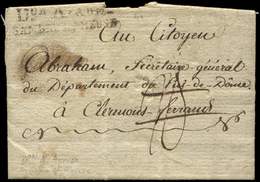 Au Citoyen
Abraham, Secrétaire-général
du Département du Puy-de-Dôme,
à Clermont-Ferrand